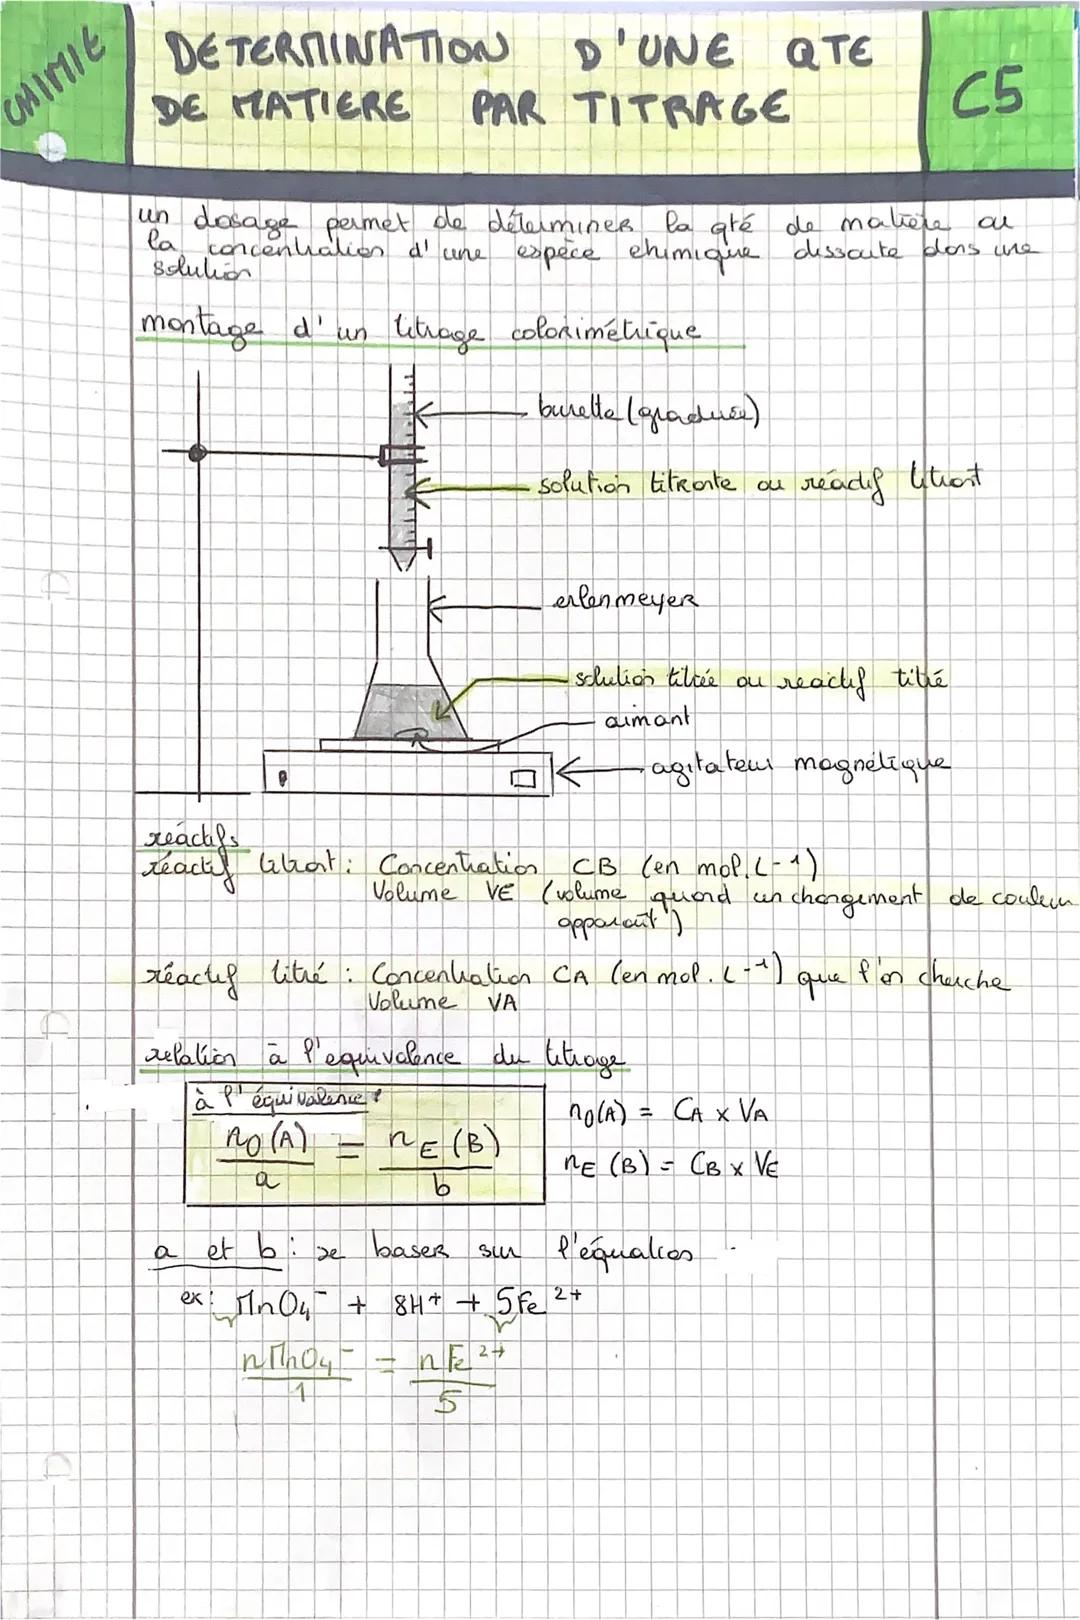 CHIMIE
DETERMINATION D'UNE QTE
DE MATIERE PAR TITRAGE
C5
un dosage permet de déterminer la qté de matière ou
la concentration d'une espèce chimique dissoute dans une
solution
montage d'un titrage colorimétrique
burette (graduée)
solution titrante ou réactif titrant
erlenmeyer
solution titrée ou reactif titré
aimant
agitateur magnétique
réactifs
réactif titrant : Concentration CB (en mol.L-1)
Volume VE (volume quand un changement de couleur
apparaît)
réactif titré : Concentration CA (en mol.L-1) que l'on cherche
Volume VA
relation à l'equivalence du titrage
à l'équivalence :
n0(A) / a = nE(B) / b
n0(A) = CA x VA
nE (B) = CB x VE
a et b : se baser sur l'équation
ex : MnO4- + 8H+ + 5Fe2+
nMnO4- / 1 = nFe2+ / 5